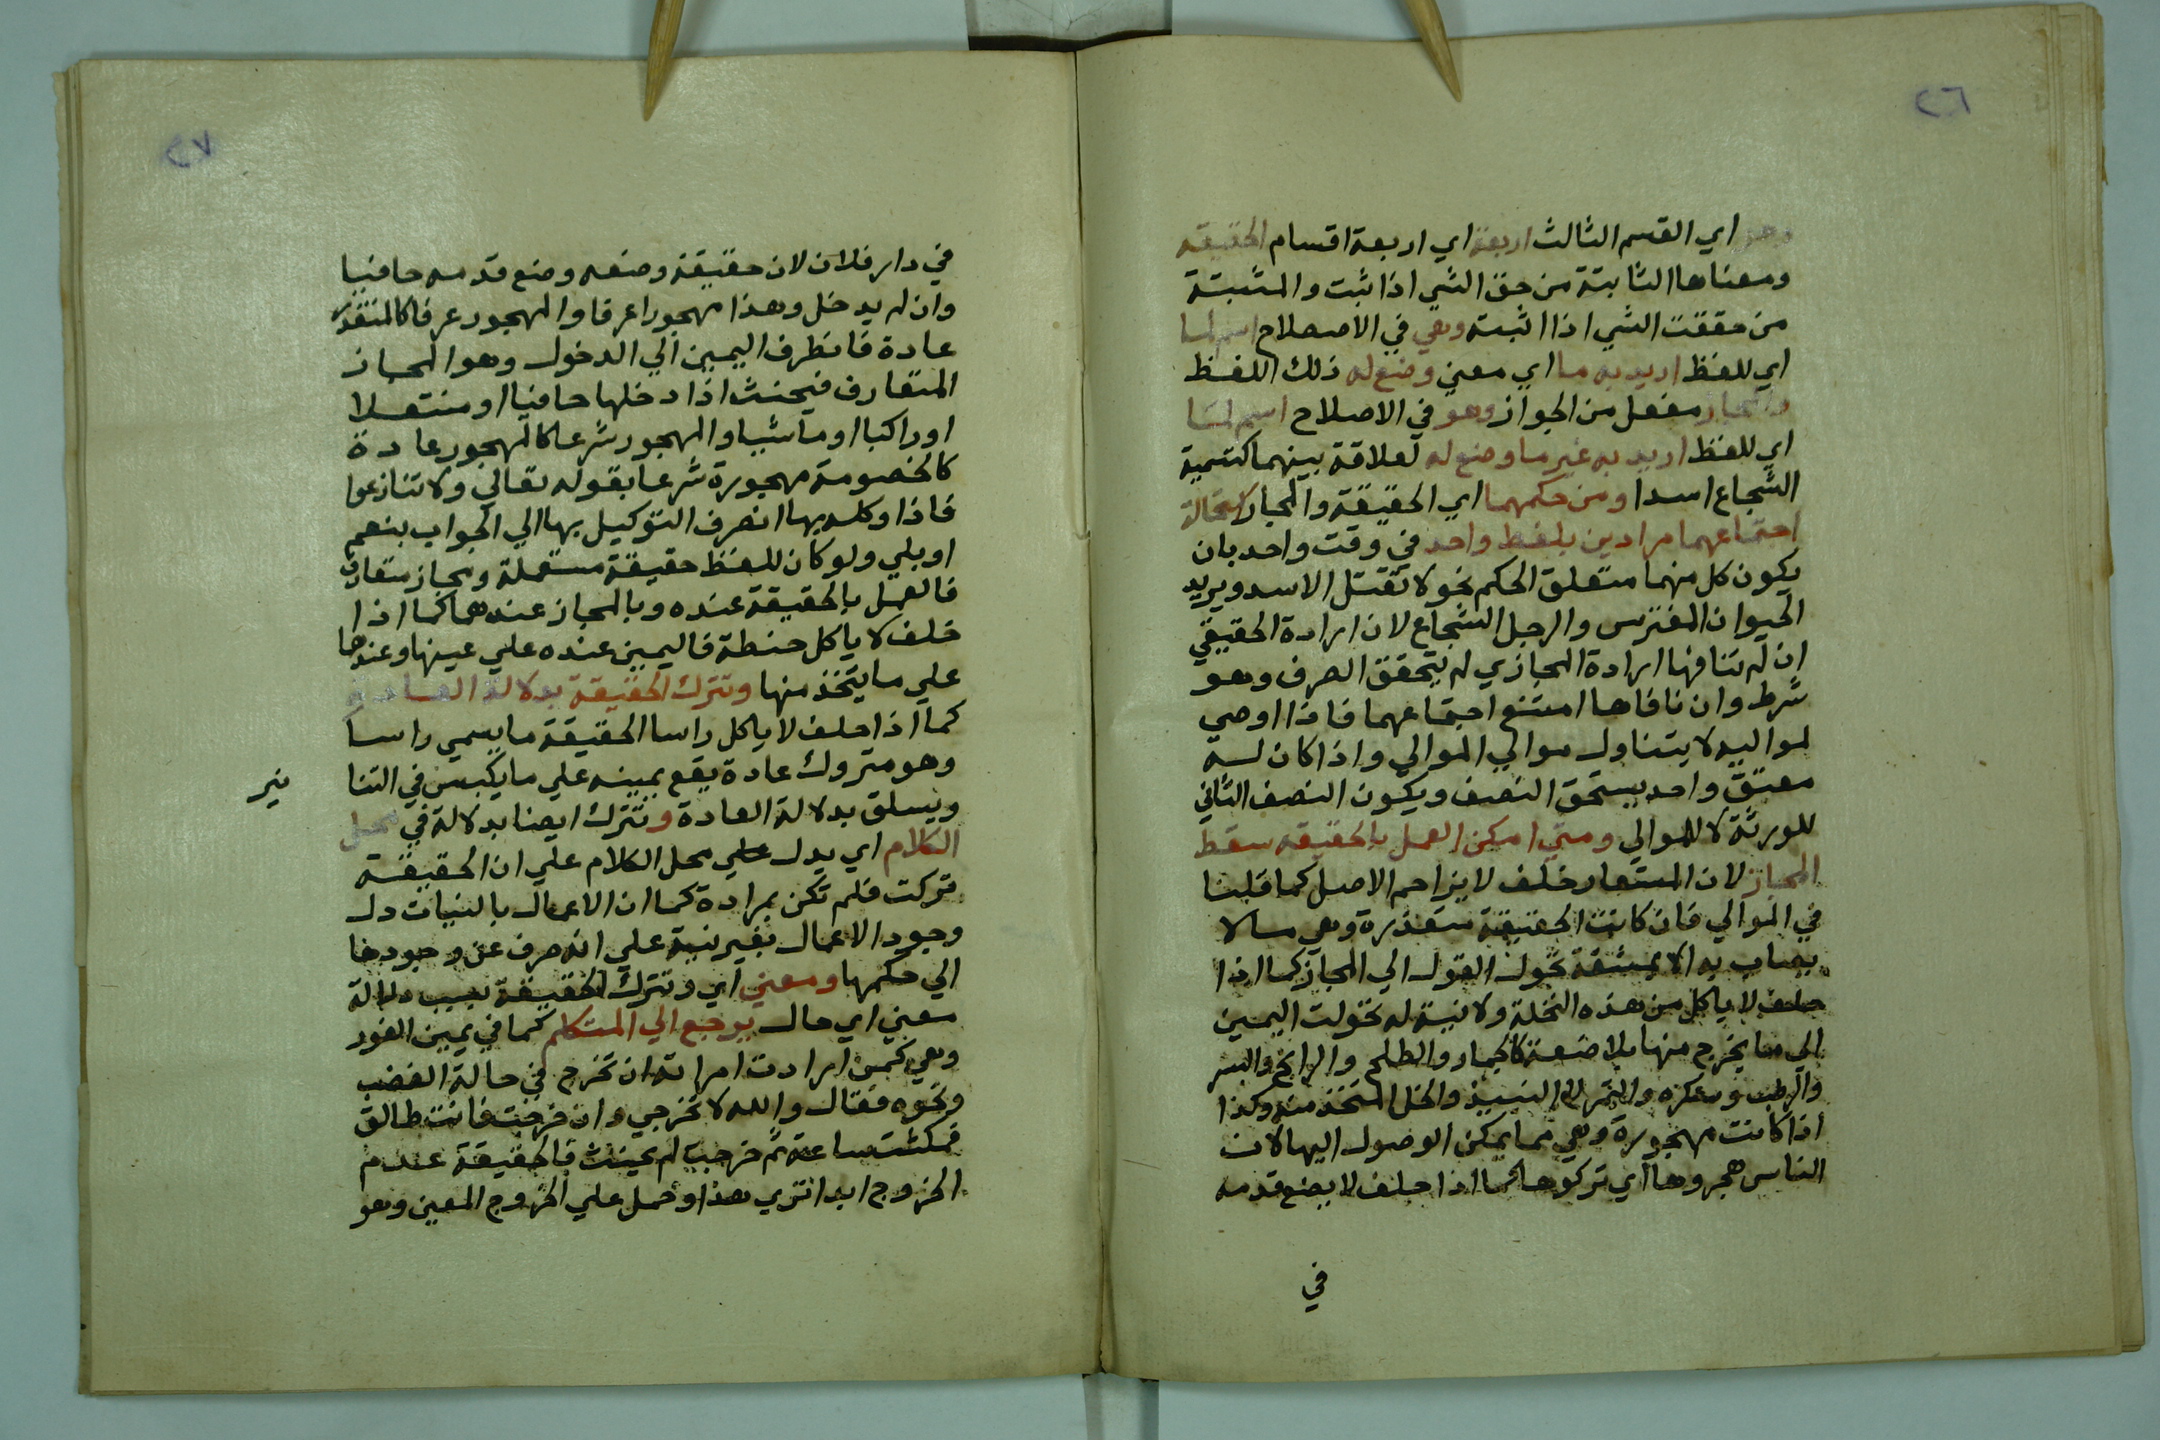 ٢٦
وهو اي القسم الثالث اربعة اي اربعة اقسام الحقيقه
ومعناها الثابتة من حق الشي اذا ثبت والمثبتة
من حققت الشي اذا اثبته وهي في الاصطلاح اسم لما
اي للفظ اريد به ما اي معني وضع له ذلك اللفظ
والمجاز مفعل من الجواز وهو في الاصلاح اسم لما
اي للفظ اريد به غير ما وضع له لعلاقة بينهما كتسمية
الشجاع اسدا ومن حكمهما اي الحقيقة والمجاز لاستحالة
اجتماعهما مرادين بلفظ واحد في وقت واحد بان
يكون كل منهما متعلق الحكم نحو لا تقتل الاسد ويريد
الحيوان المفترس والرجل الشجاع لان ارادة الحقيقي
ان لم تنافها ارادة المجازي لم يتحقق الصرف وهو
شرط وان نافاها امتنع اجتماعهما فاذا اوصي
لمواليه لا يتناول موالي الموالي واذا كان له
معتق واحد يستحق النصف ويكون النصف الثاني
للورثة لا للموالي ومتي امكن العمل بالحقيقه سقط
المجاز لان المستعار خلف لا يزاحم الاصل كما قلنا
في الموالي فان كانت الحقيقة متعذرة وهي ما لا
يصاب به الا بمشقة تحول القول الي المجاز كما اذا
حلف لا ياكل من هذه النخلة ولا نية له تحولت اليمين
الي ما يخرج منها بلا صنعة كالجمار والطلع والرانج والبسر
والرطب وعكره والتمر لا النبيذ والخل المتخذ منه وكذا
اذا كانت مهجورة وهي مما يمكن الوصول اليها لان
الناس هجروها اي تركوها كما اذا حلف لا يضع قدمه
في
٢٧
في دار فلان لان حقيقة وضعه وضع قدمه حافيا
وان لم يدخل وهذا مهجور اعرفا والمهجور عرفا كالمتعذر
عادة فانظرف اليمين الي الدخول وهو المجاز
المتعارف فيحنث اذا دخلها حافيا او منتعلا
او راكبا او ماشيا والمهجور شرعا كالمهجور عادة
كالخصومة مهجورة شرعا بقوله تعالي ولا تنازعوا
فاذا وكله بها انصرف التوكيل بها الي الجواب بنعم
او بلي ولو كان للفظ حقيقة مستعملة ومجاز متعارف
فالعمل بالحقيقة عنده وبالمجاز عندهما كما اذا
حلف لا ياكل حنطة فاليمين عنده علي عينها وعندهما
علي ما يتخذ منها وتترك الحقيقة بدلالة العادة
كما اذا حلف لا ياكل راسا الحقيقة ما يسمي راسا
وهو متروك عادة يقع يمينه علي ما يكبس في التنا
نير
ويسلق بدلالة العادة وتترك ايضا بدلالة في محل
الكلام اي يدل علي محل الكلام علي ان الحقيقة
تركت فلم تكن بمرادة كما ان الاعمال بالنيات دل
وجود الاعمال بغير نية علي انه صرف عن وجودها
الي حكمها ومعني اي وتترك الحقيقة بسبب دلالة
معني اي حال يرجع الي المتكلم كما في يمين الفور
وهي كمن ارادت امراته ان تخرج في حالة الغضب
ونحوه فقال والله لا تخرجي وان خرجت فانت طالق
فمكثت ساعة ثم خرجت لم يحنث فالحقيقة عدم
الخروج ابدا تري هذا وحمل علي الخروج المعين وهو